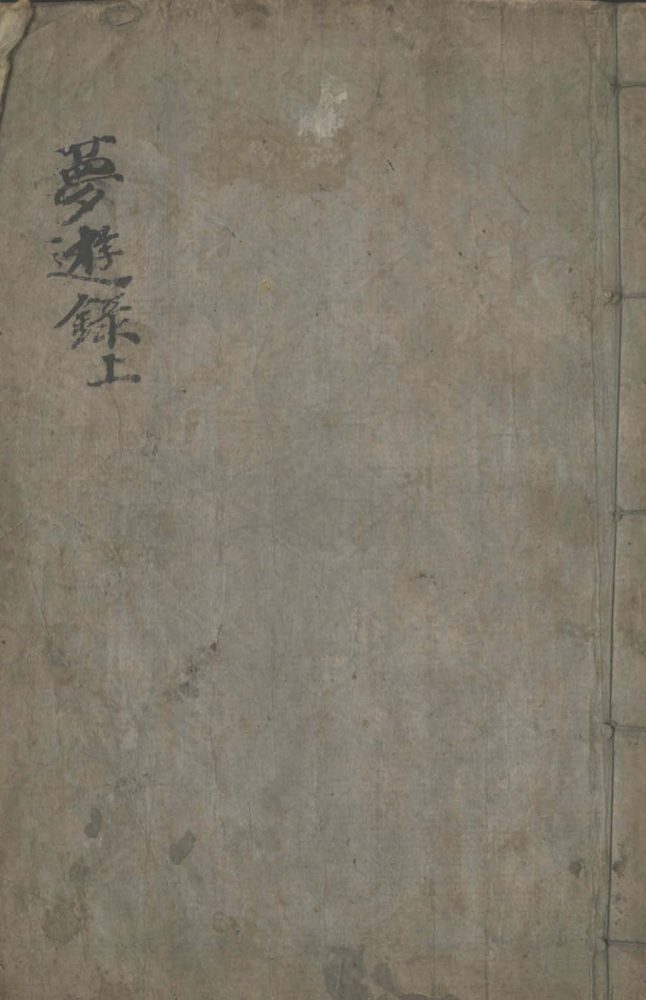 夢遊錄上